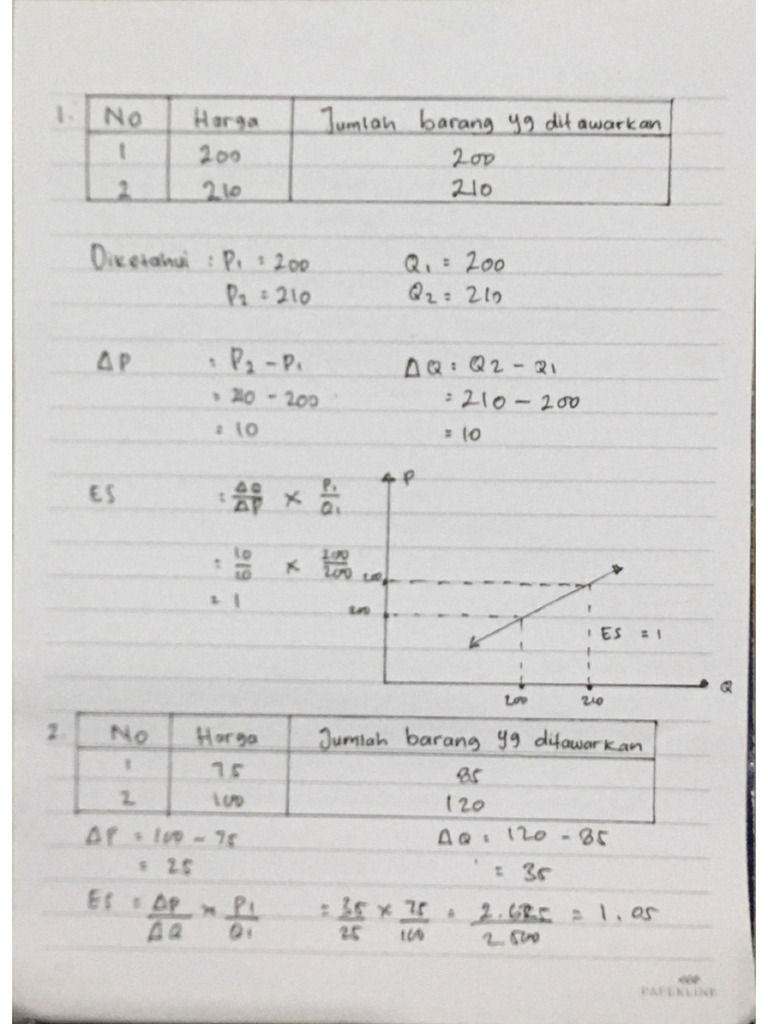 1. No Harga Jumlah barang yg ditawarkan
1 200 200
2 210 210
Diketahui : P1 = 200 Q1 = 200
P2 = 210 Q2 = 210
ΔP = P2 - P1 ΔQ = Q2 - Q1
= 210 - 200 = 210 - 200
= 10 = 10
ES = ΔQ/ΔP × P1/Q1
P
= 10/10 × 200/200
= 1
200
ES = 1
Q
200 210
2. No Harga Jumlah barang yg ditawarkan
1 75 85
2 100 120
ΔP = 100 - 75 ΔQ = 120 - 85
= 25 = 35
ES = ΔP/ΔQ × P1/Q1 = 35/25 × 75/100 = 2.625/2.500 = 1.05
PAPERLINE